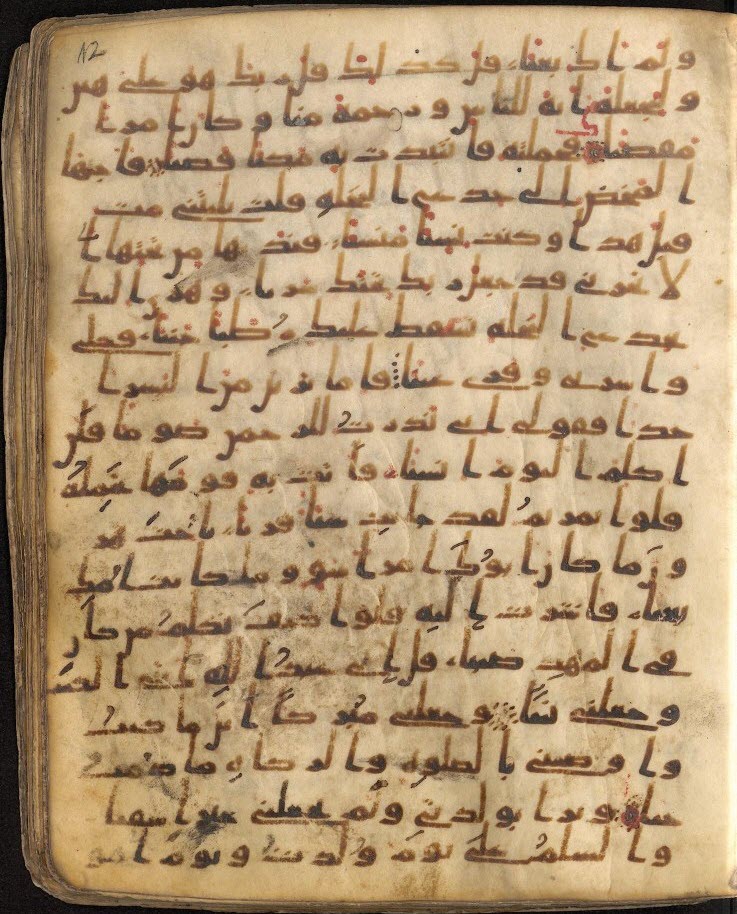 12
ولم اك بغيا قل كذلك قل ربك هو على هين
ولنجعله اية للناس ورحمة منا وكان امرا
مقضيا فحملته فانتبذت به مكنا قصيا فاجاها
المخض الى جذع النخلة قلت يليتني مت
قبل هذا وكنت نسيا منسيا فنديها من تحتها ا
لا تحزني قد جعل ربك تحتك سريا وهزي اليك
بجذع النخلة تسقط عليك رطبا جنيا فكلي
واشربي وقري عينا فاما ترين من البشر ا
حدا فقولي اني نذرت للرحمن صوما فلن
اكلم اليوم انسيا فاتت به قومها تحمله
قلوا يمريم لقد جيت شيا فريا ياخت هر
ون ما كان ابوك امرا سو وما كانت امك
بغيا فاشرت اليه قلوا كيف نكلم من كان
في المهد صبيا قل اني عبد الله اتني الكتب
وجعلني نبيا وجعلني مبركا اين ما كنت
واوصني بالصلوة والزكوة ما دمت
حيا وبرا بولدتي ولم يجعلني جبرا شقيا
والسلم على يوم ولدت ويوم امو